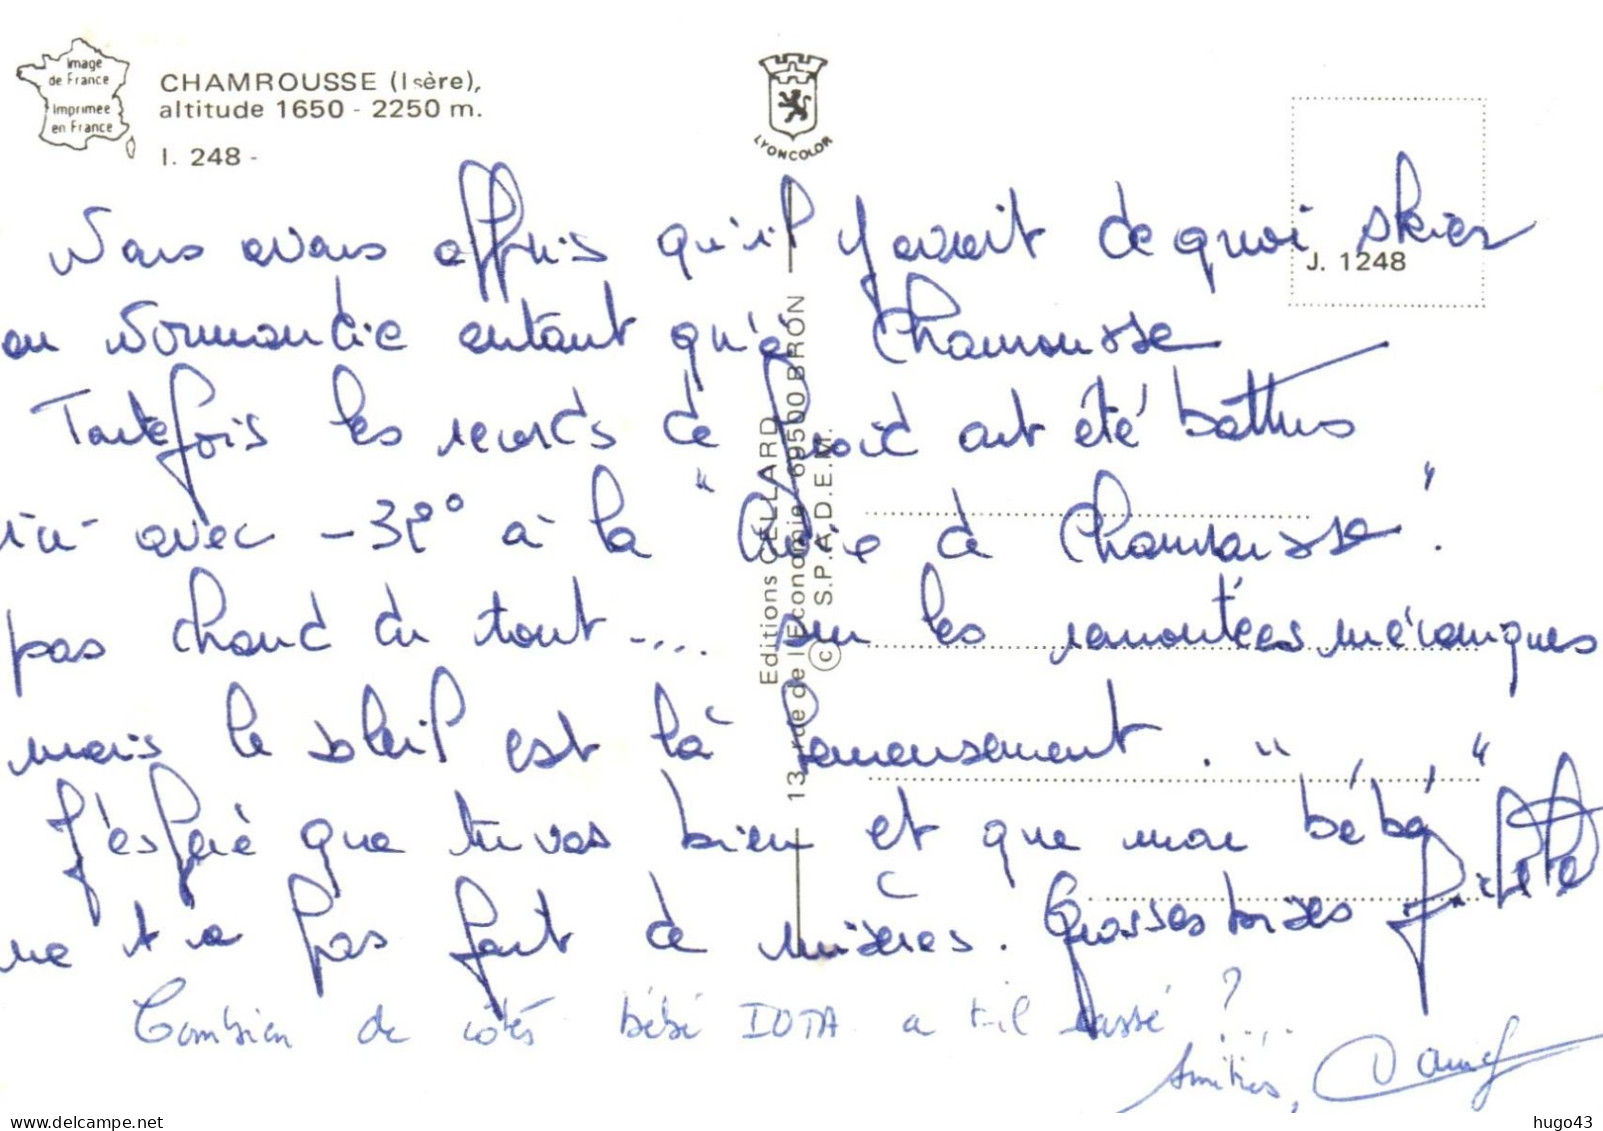 Image
de France
Imprimée
en France
CHAMROUSSE (Isère),
altitude 1650 - 2250 m.
I. 248 -
LYONCOLOR
J. 1248
Editions CELLARD
13, rue de l'Economie - 69500 BRON
© S.P.A.D.E.M.
Nous avons appris qu'il y avait de quoi skier
en Normandie autant qu'à Chamrousse
Toutefois les records de froid ont été battus
ici avec -32° à la "Croix de Chamrousse".
pas chaud du tout .... sur les remontées mécaniques
mais le soleil est là heureusement.
J'espère que tu vas bien et que mon "bébé"
ne t'a pas fait de misères. Grosses bises
Combien de côtés bébé IOTA a t-il cassé ?....
Amitiés,
hugo43